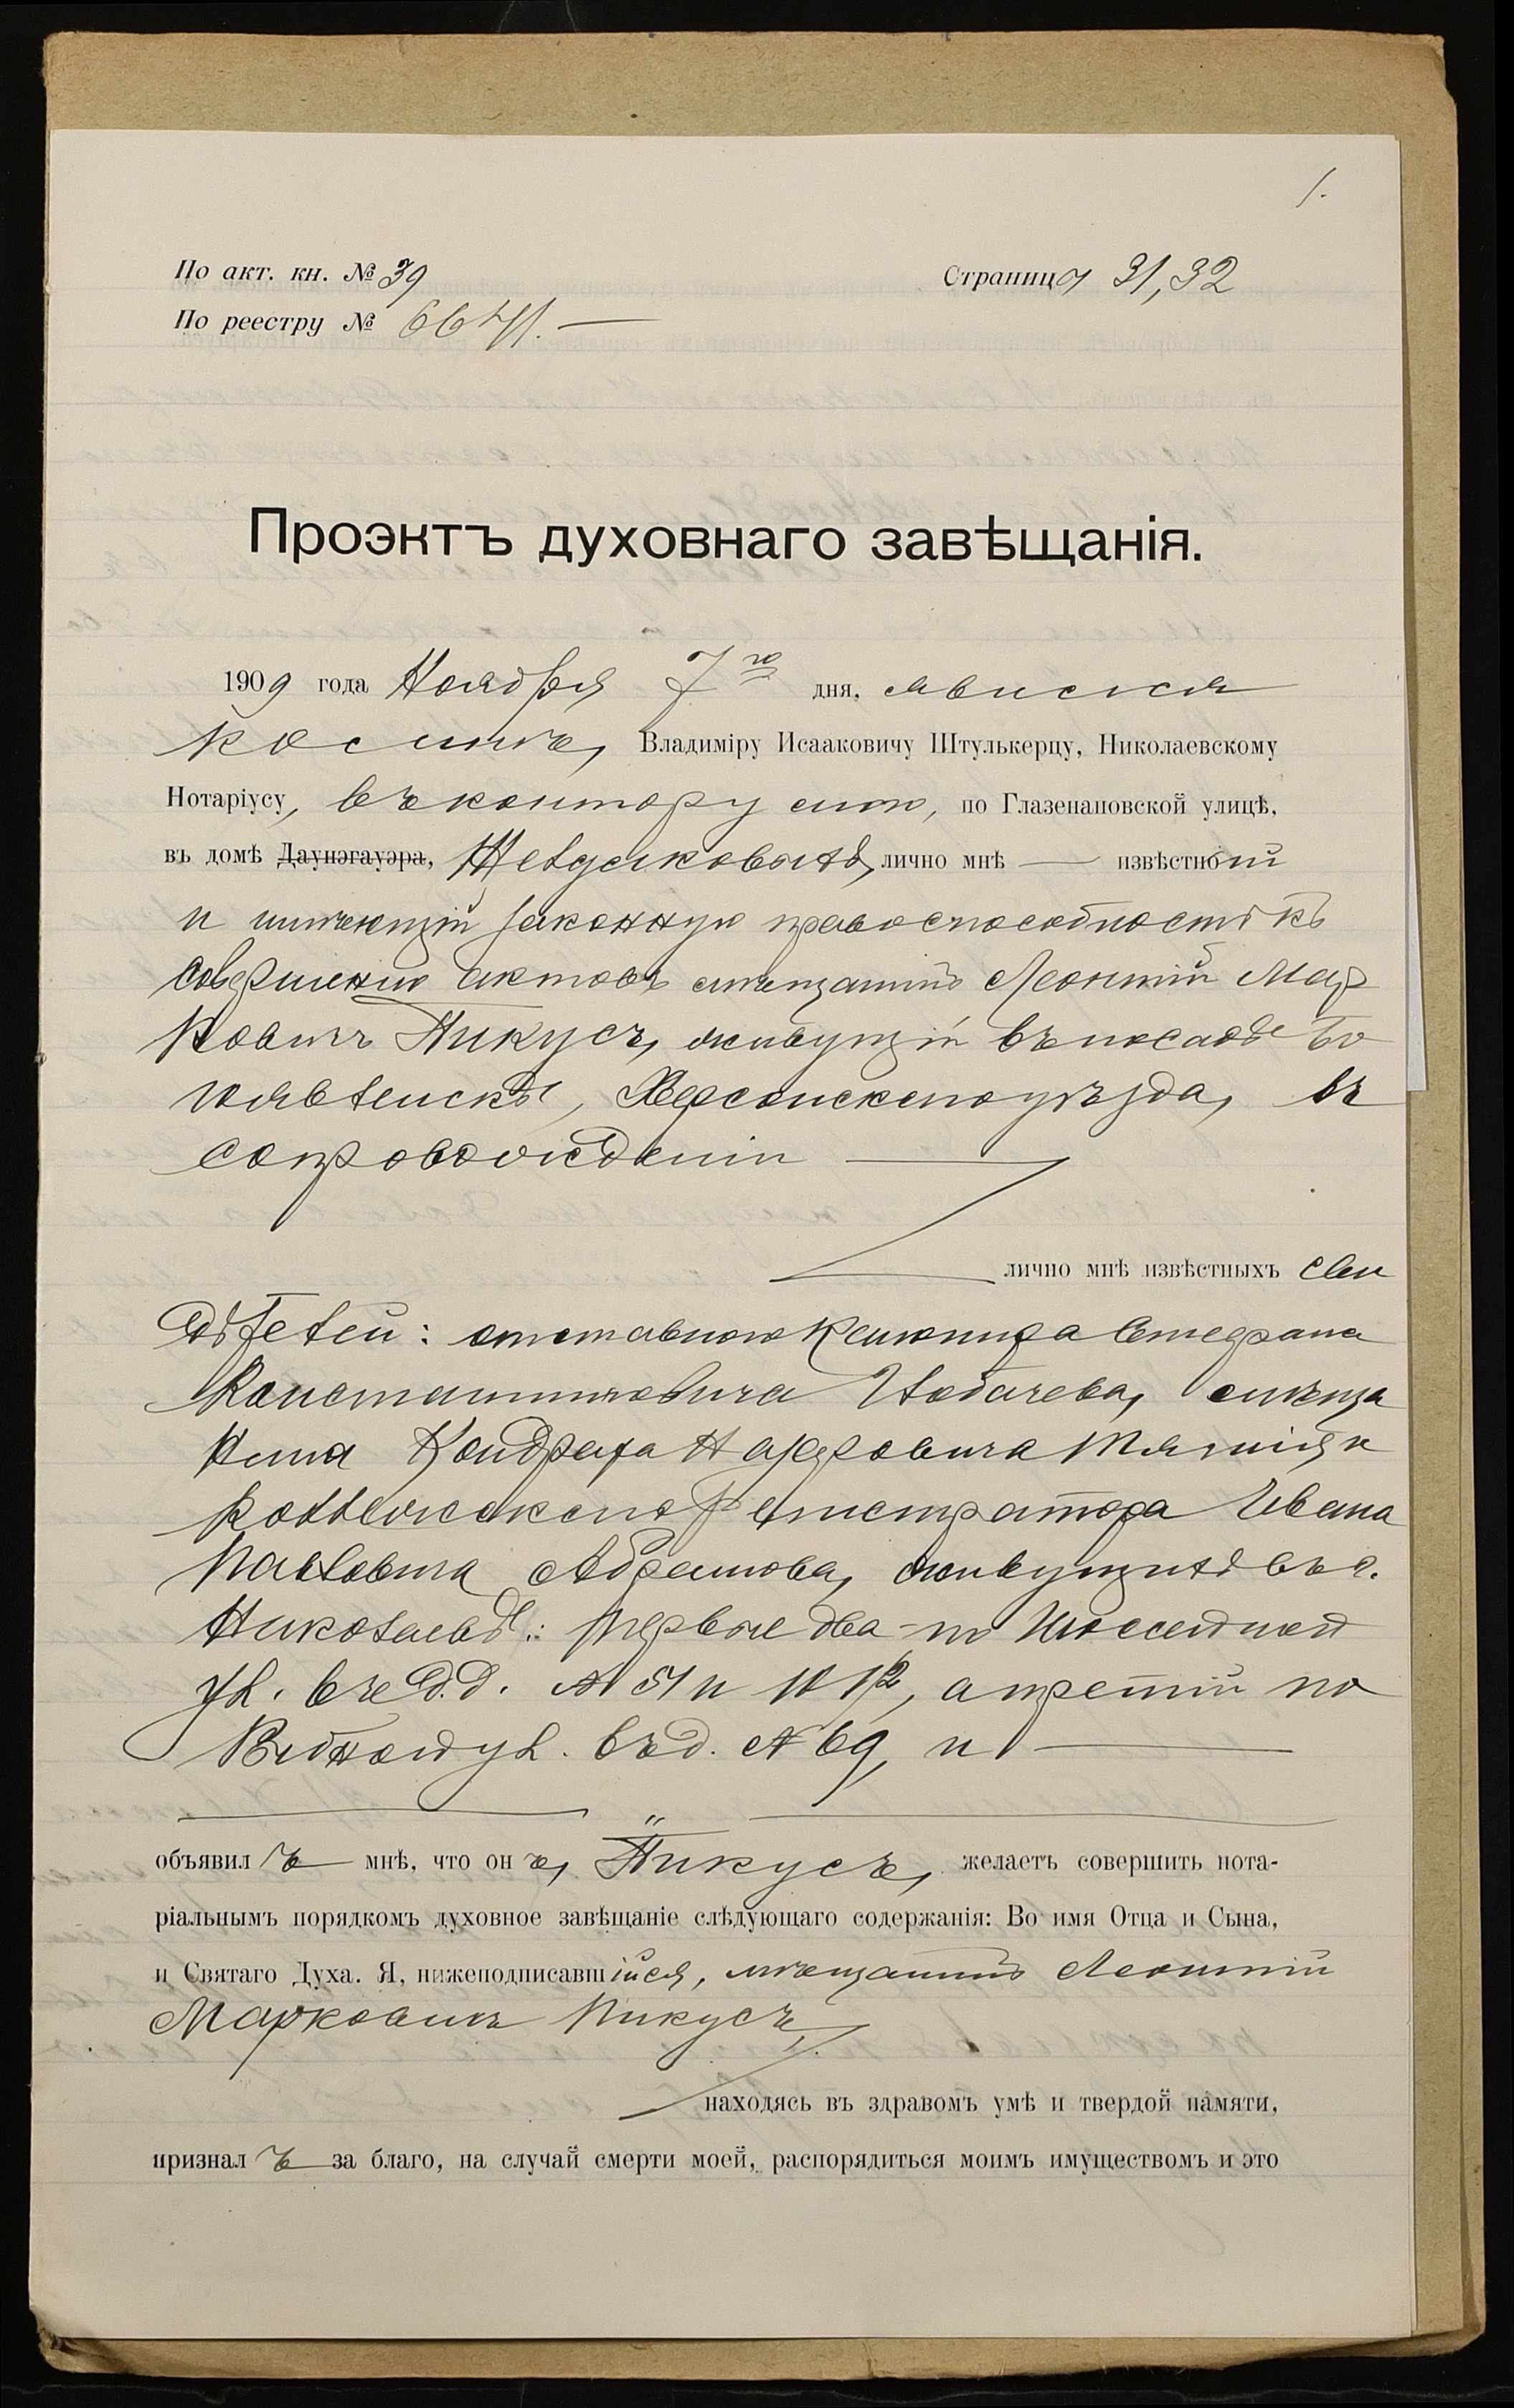 1.
По акт. кн. № 39
Страница 31, 32
По реестру № 6641.
Проэктъ духовнаго завѣщанія.
1909 года Ноября 7го дня, явился
ко мнѣ, Владиміру Исааковичу Штулькерцу, Николаевскому
Нотаріусу, въ контору мою, по Глазенаповской улицѣ,
въ домѣ Даунэгауэра, лично мнѣ — извѣстный
и имѣющій законную правоспособность къ
совершенію актовъ мѣщанинъ Леонтій Мар
ковичъ Пикусъ, живущій въ посадѣ Бо
гоявленскѣ, Херсонскаго уѣзда, въ
сопровожденіи
лично мнѣ извѣстныхъ сви
дѣтелей: отставного Стефана
Константиновича мѣща
нина Кондрата и
Коллежскаго Регистратора Ивана
Павловича Абрамова, живущихъ въ г.
Николаевѣ: первые два по
ул. въ д.д. № 51 и № 12, а третій по
ул. въ д. № 69, и
объявилъ мнѣ, что онъ, Пикусъ, желаетъ совершить нота-
ріальнымъ порядкомъ духовное завѣщаніе слѣдующаго содержанія: Во имя Отца и Сына,
и Святаго Духа. Я, нижеподписавшійся, мѣщанинъ Леонтій
Марковичъ Пикусъ,
находясь въ здравомъ умѣ и твердой памяти,
призналъ за благо, на случай смерти моей, распорядиться моимъ имуществомъ и это